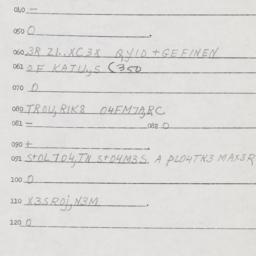 040 —
050 0
060 3R 21..XC3X QYID + GEFINEN
061 OF KATU,S (350
070 0
080 TROU,RIK8 04FM7A,RC
081 — 088 0
090 +
091 S+OL704,TN S+04M3S A PLO4TK3 MAX3R
100 0
110 X3SROJ,N3M
120 0